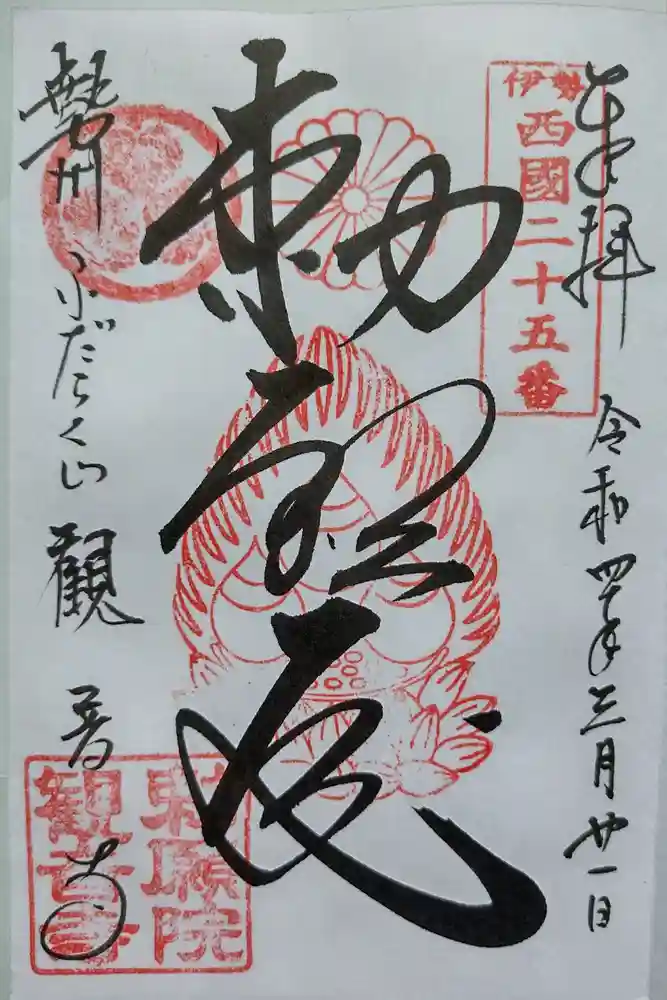 伊勢
西國二十五番
奉拝 令和四年三月廿一日
勅願
勢州 ふだらく山 觀音寺
勅願院
観音寺